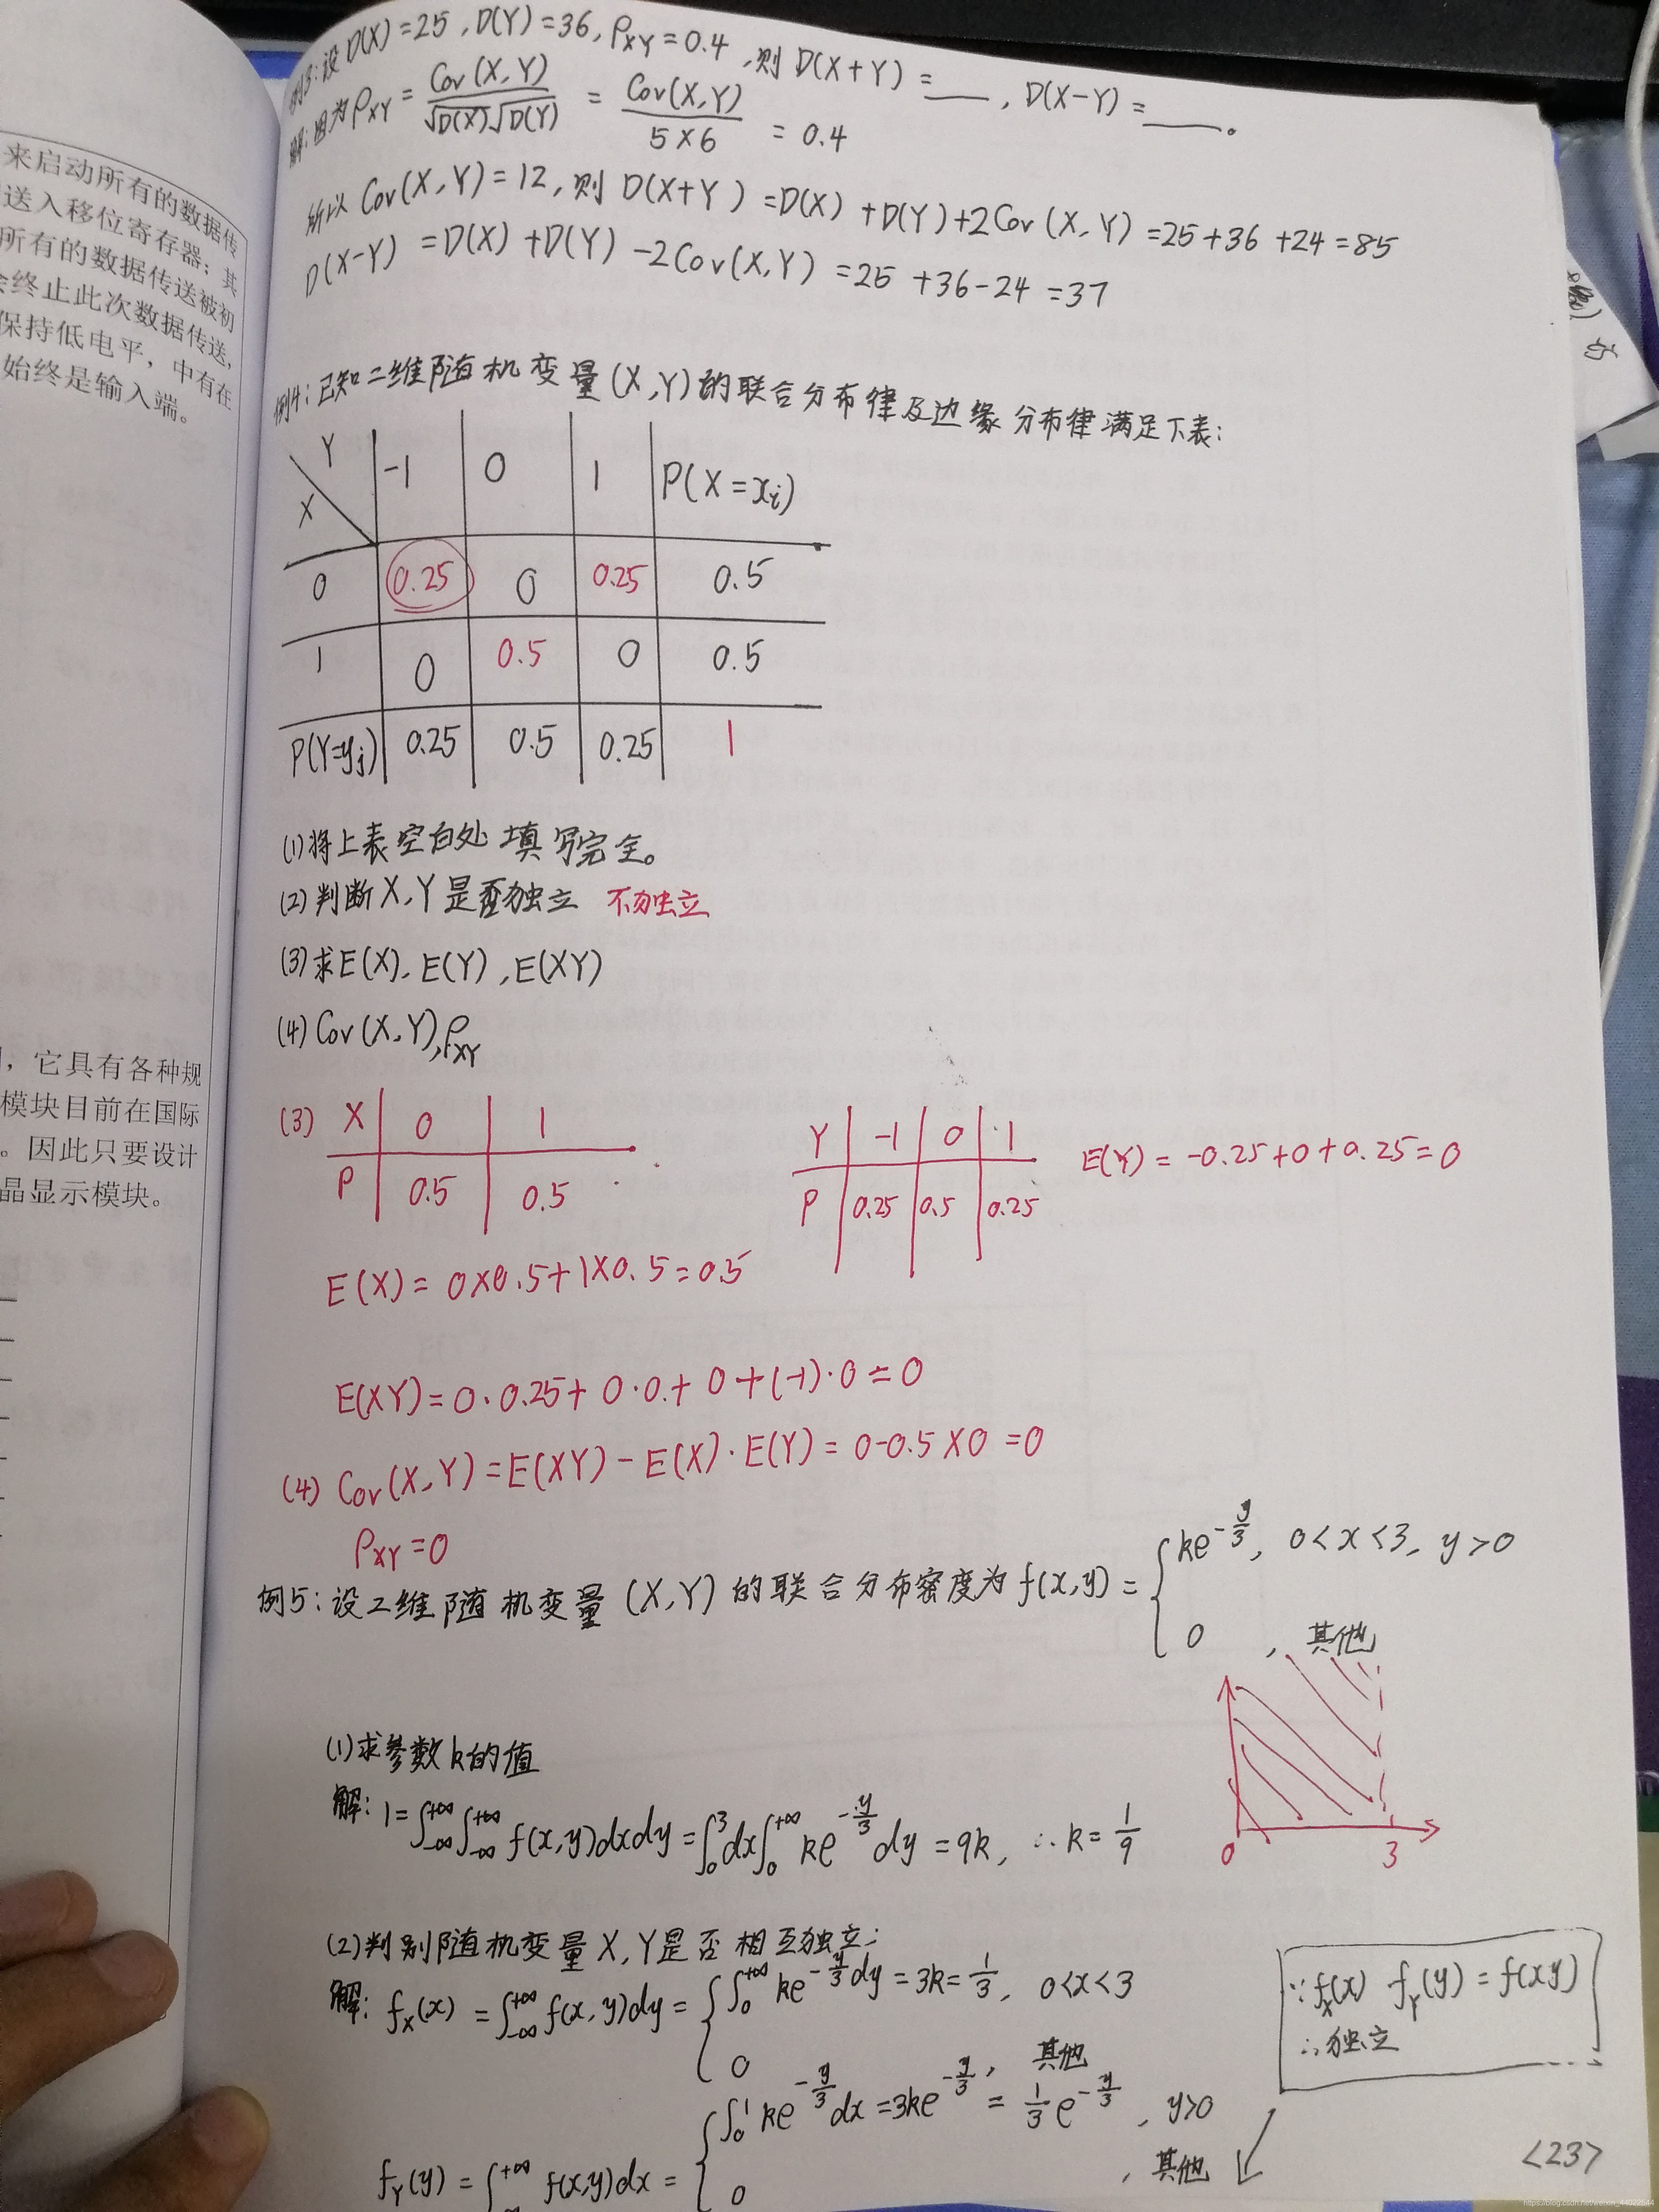 来启动所有的数据传
送入移位寄存器；其
所有的数据传送被初
会终止此次数据传送,
保持低电平，中有在
始终是输入端。
，它具有各种规
模块目前在国际
。因此只要设计
晶显示模块。
例3:设D(X)=25,D(Y)=36,ρXY=0.4,则D(X+Y)=___,D(X-Y)=____。
解:因为ρXY=Cov(X,Y)/(√D(X)√D(Y))=Cov(X,Y)/(5×6)=0.4
所以Cov(X,Y)=12,则D(X+Y)=D(X)+D(Y)+2Cov(X,Y)=25+36+24=85
D(X-Y)=D(X)+D(Y)-2Cov(X,Y)=25+36-24=37
例4:已知二维随机变量(X,Y)的联合分布律及边缘分布律满足下表:
X Y -1 0 1 P(X=xi)
0 0.25 0 0.25 0.5
1 0 0.5 0 0.5
P(Y=yj) 0.25 0.5 0.25 1
(1)将上表空白处填写完全。
(2)判断X,Y是否独立 不独立
(3)求E(X),E(Y),E(XY)
(4)Cov(X,Y),ρXY
(3) X 0 1
P 0.5 0.5
Y -1 0 1
P 0.25 0.5 0.25
E(Y)=-0.25+0+0.25=0
E(X)=0×0.5+1×0.5=0.5
E(XY)=0·0.25+0·0+0+(-1)·0=0
(4) Cov(X,Y)=E(XY)-E(X)·E(Y)=0-0.5×0=0
ρXY=0
例5:设二维随机变量(X,Y)的联合分布密度为f(x,y)={ke^(-y/3), 0<x<3, y>0
0, 其他
0 3
(1)求参数k的值
解:1=∫_{-∞}^{+∞}∫_{-∞}^{+∞}f(x,y)dxdy=∫_0^3dx∫_0^{+∞}ke^(-y/3)dy=9k, ∴k=1/9
(2)判别随机变量X,Y是否相互独立;
解:fX(x)=∫_{-∞}^{+∞}f(x,y)dy={∫_0^{+∞}ke^(-y/3)dy=3k=1/3, 0<x<3
0, 其他
fY(y)=∫^{+∞}f(x,y)dx={∫_0^1ke^(-y/3)dx=3ke^(-y/3)=1/3e^(-y/3), y>0
0, 其他
∵fX(x) fY(y)=f(xy)
∴独立
<23>